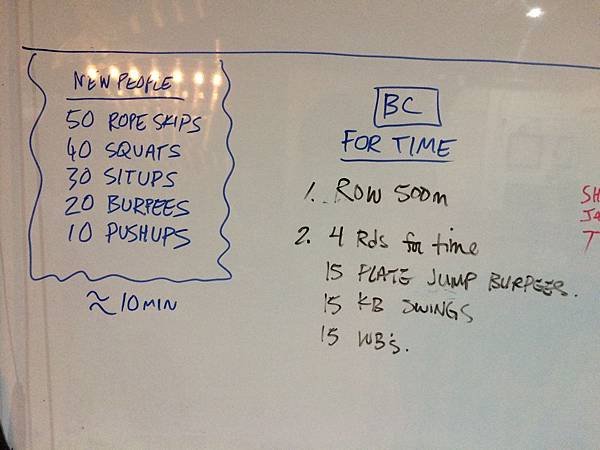 NEW PEOPLE
50 ROPE SKIPS
40 SQUATS
30 SITUPS
20 BURPEES
10 PUSHUPS
≈ 10 MIN
BC
FOR TIME
1. ROW 500m
2. 4 Rds for time
15 PLATE JUMP BURPEES.
15 KB SWINGS
15 WB's.
SH
T